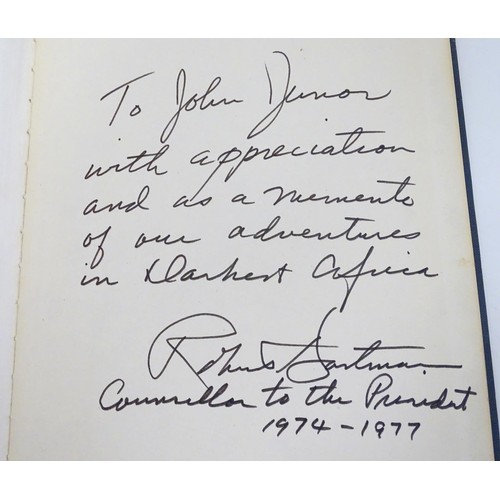 To John Junor
with appreciation
and as a memento
of our adventures
in Darkest Africa
Robert Hartmann
Counsellor to the President
1974-1977